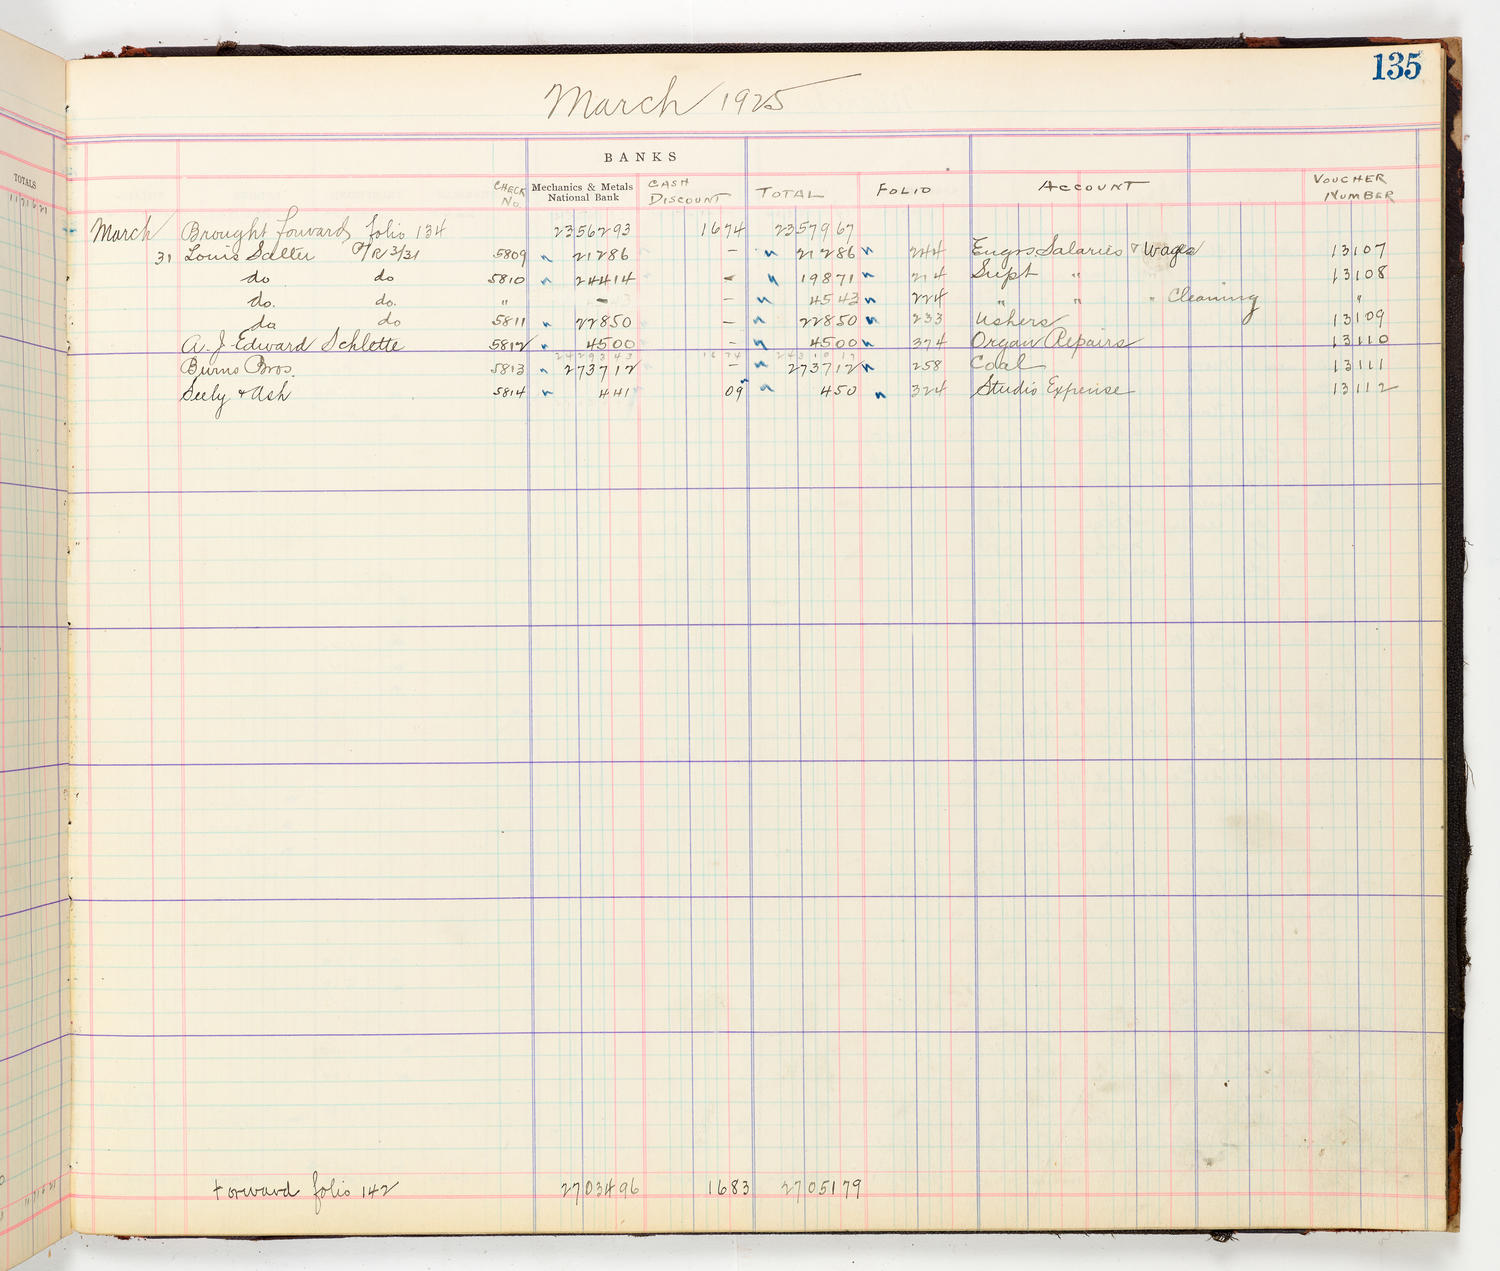 135
March 1925
TOTALS
BANKS
CHECK No. Mechanics & Metals National Bank CASH DISCOUNT TOTAL FOLIO ACCOUNT VOUCHER NUMBER
March Brought forward folio 134 2356293 1674 2357967
31 Louis Salter P/R 3/31 5809 21286 – 21286 244 Engrs Salaries & Wages 13107
do do 5810 24414 – 19871 214 Supt " 13108
do. do. " – – 4543 224 " " " Cleaning "
do do 5811 22850 – 22850 233 Ushers 13109
A. J. Edward Schlette 5812 4500 – 4500 374 Organ Repairs 13110
2429343 1674 2431017
Burns Bros. 5813 273712 – 273712 258 Coal 13111
Seely & Ash 5814 441 09 450 324 Studio Expense 13112
Forward folio 142 2703496 1683 2705179